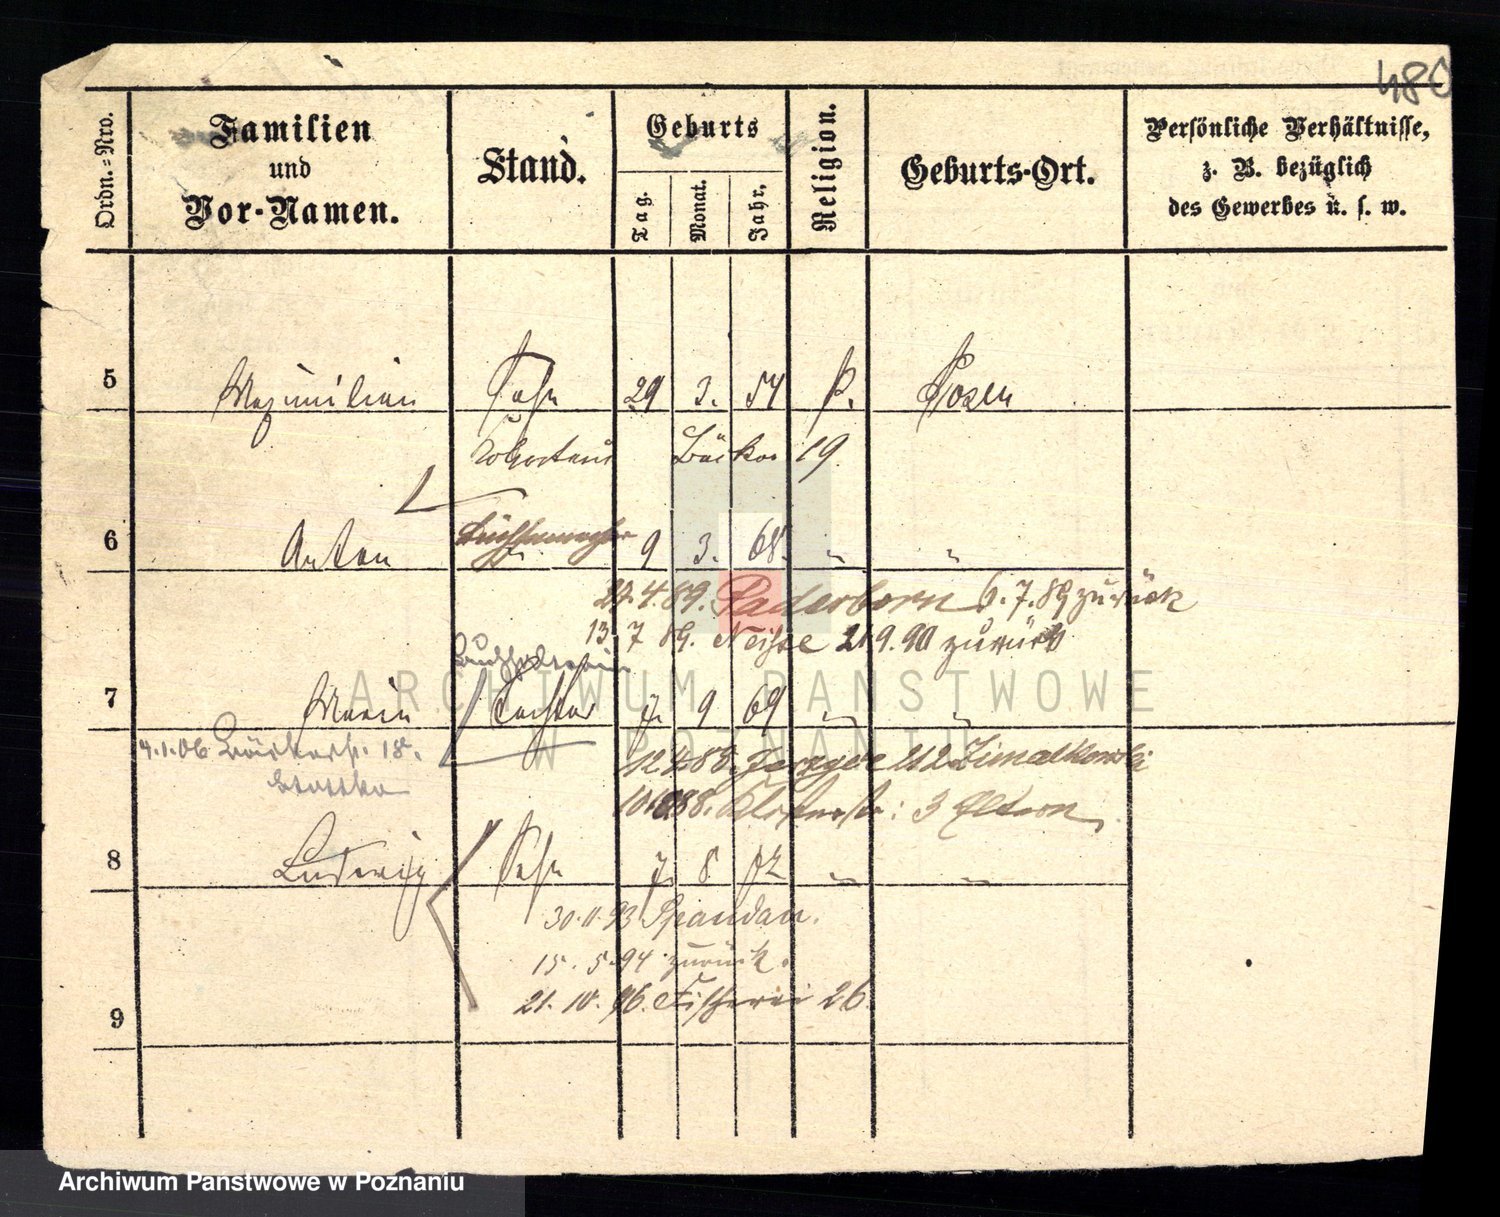 480
Ordn.=Nro.
Familien
und
Vor-Namen.
Stand.
Geburts
Tag.
Monat.
Jahr.
Religion.
Geburts-Ort.
Persönliche Verhältnisse,
z. B. bezüglich
des Gewerbes u. s. w.
5 Maximilian Sohn 29 3. 54 P. Posen
Bäcker 19
6 Anton 9 3. 68. " "
27.4.89. Paderborn 6.7.89 zurück
13.7 89. Neisse 21.9.90 zurück
7 Maria Tochter 7. 9 69 " "
4.1.06 Bäckerstr. 18.
12 4 88. 212
10.10.88. Klosterstr: 3 Eltern
8 Ludwig Sohn 7. 8 72 " "
30.11.93 Spandau.
15.5.94 zurück.
21.10.96. Fischerei 26.
9
ARCHIWUM PAŃSTWOWE
W POZNANIU
Archiwum Państwowe w Poznaniu